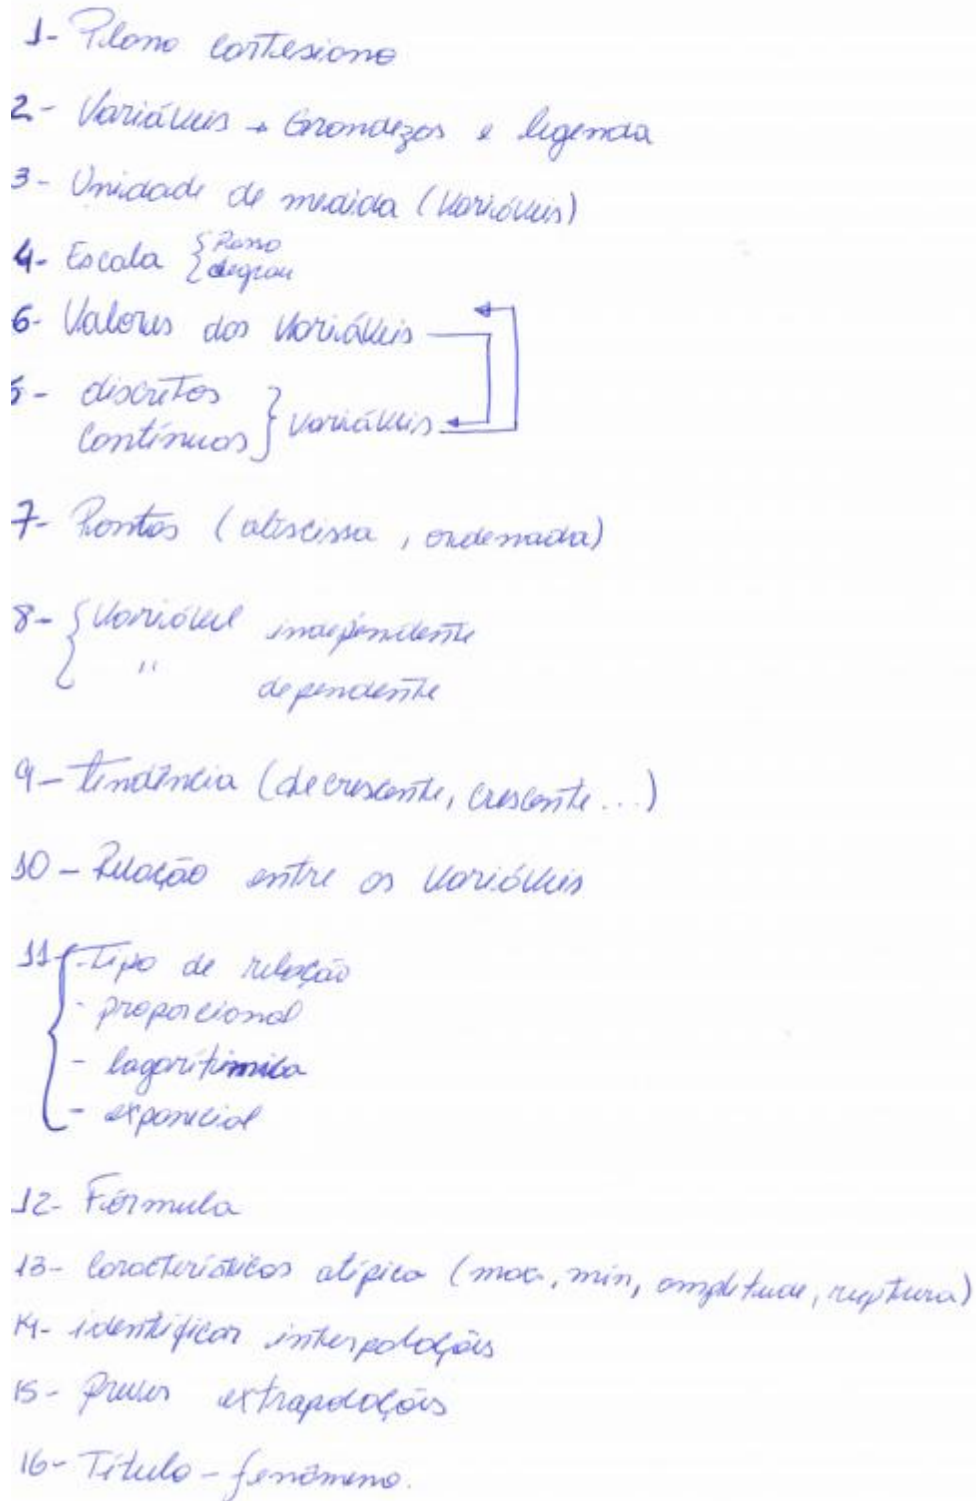 1- Plano cartesiano
2- Variáveis → Grandezas e legenda
3- Unidade de medida (variáveis)
4- Escala { Passo
degrau
6- Valores das variáveis
5- discretos
contínuos } variáveis
7- Pontos (abscissa, ordenada)
8- { Variável independente
" dependente
9- tendência (decrescente, crescente...)
10- Relação entre as variáveis
11- { - Tipo de relação
- proporcional
- lagarítimica
- expanicial
12- Fórmula
13- Características atípica (max, min, amplitude, ruptura)
14- identificar interpolações
15- prever extrapolações
16- Título - fenômeno.